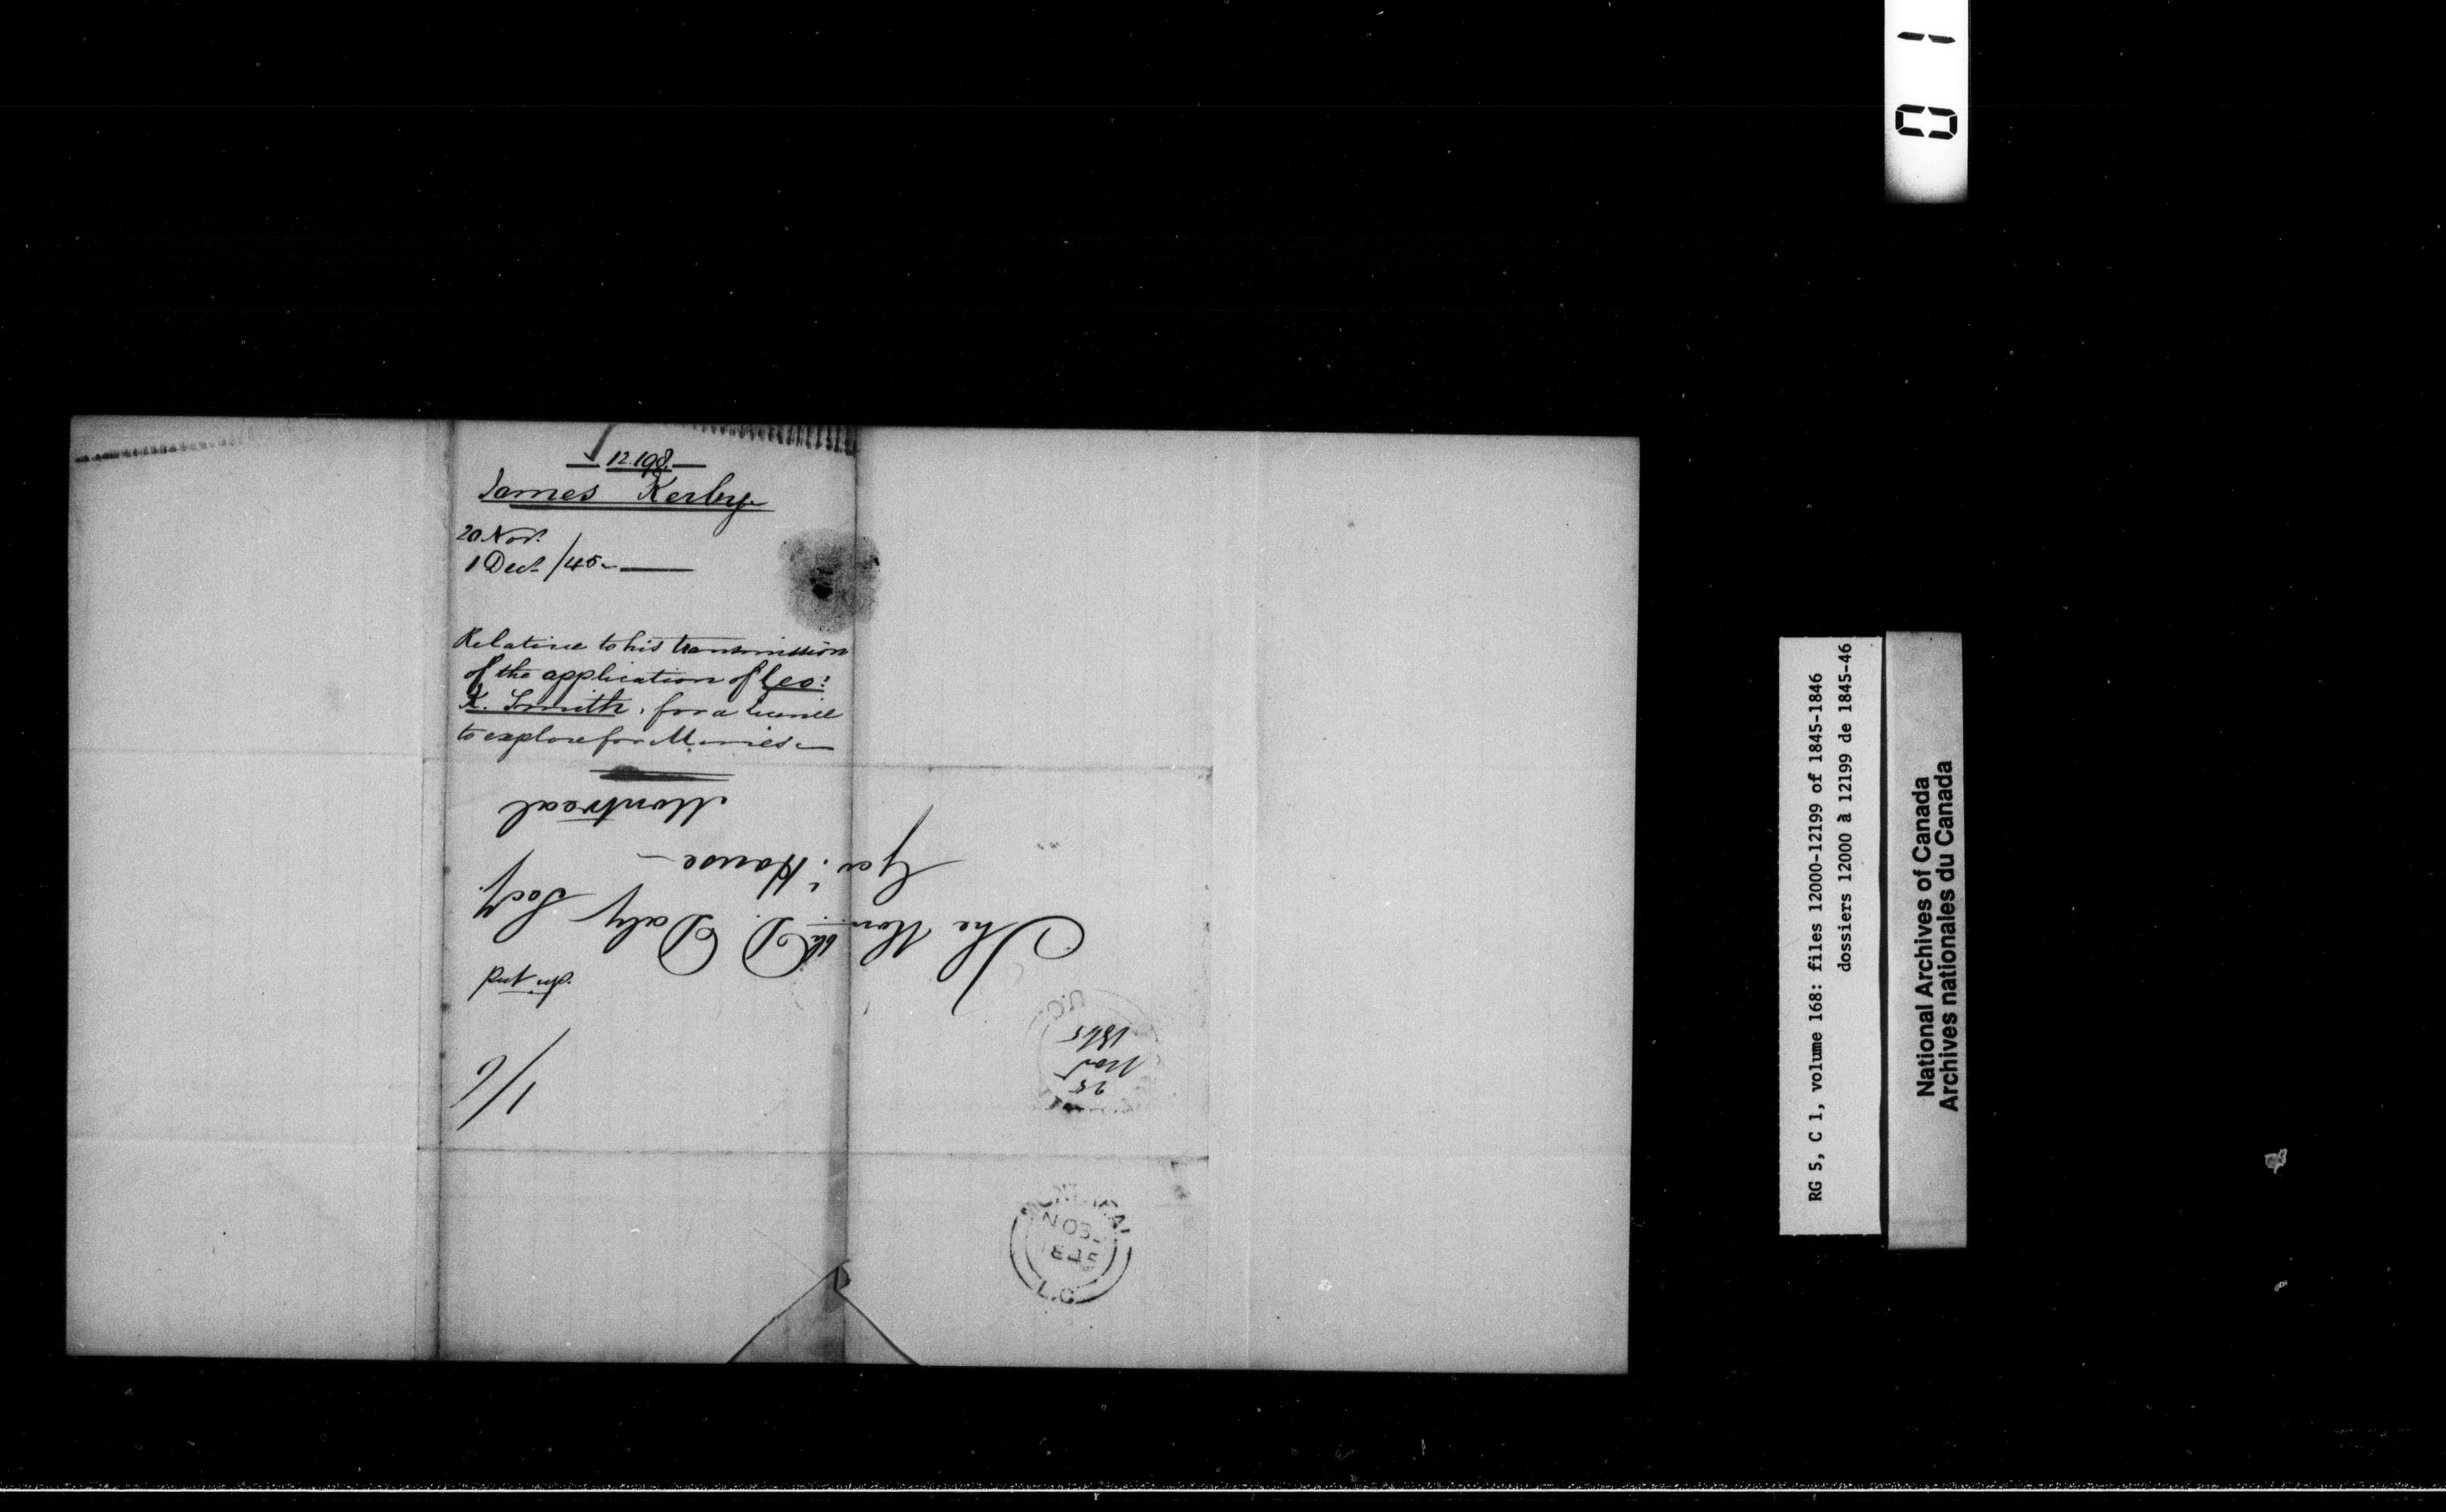 12.198.
James Kerby
20 Novr.
1 Decr. /45
Relative to his transmission
of the application of Geo:
K. Smith, for a license
to explore for Mines
The Honble D. Daly Secy.
Gov.t House
Montreal
put up.
1/6
25
Nov
1845
U.C.
MONTREAL
NO
1845
L.C.
RG 5, C 1, volume 168: files 12000-12199 of 1845-1846
dossiers 12000 à 12199 de 1845-46
National Archives of Canada
Archives nationales du Canada